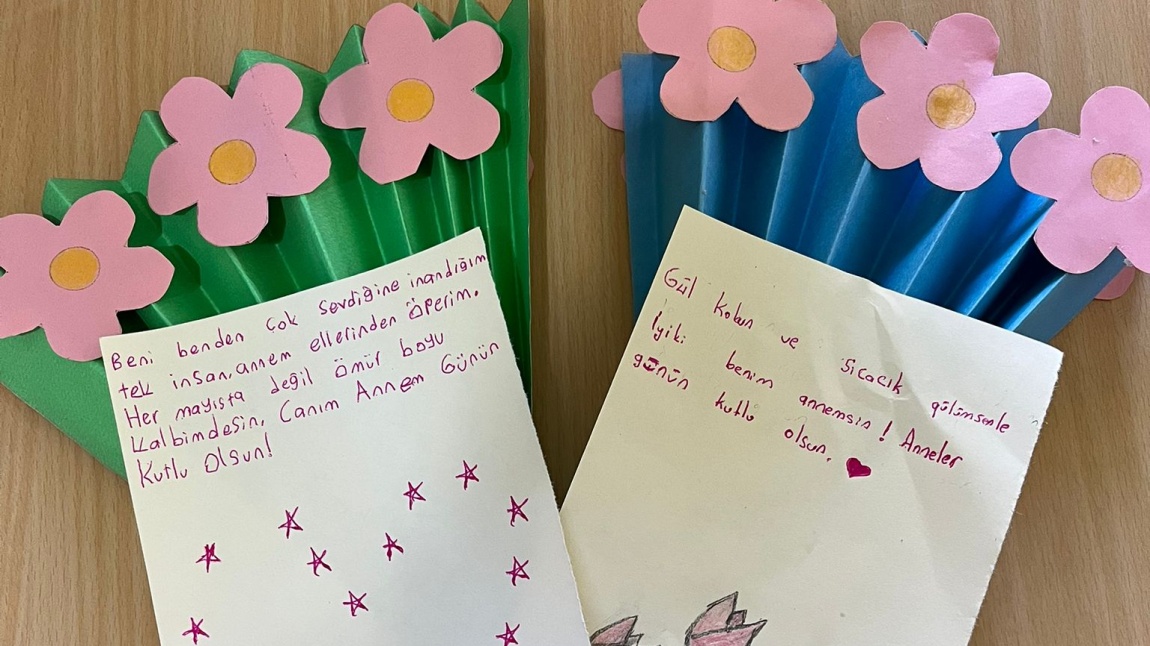 Beni benden çok sevdiğine inandığım
tek insan, annem ellerinden Öperim.
Her mayısta değil ömür boyu
kalbimdesin, Canım Annem Günün
Kutlu Olsun!
Gül kokun ve sicacık gülümsenle
İyiki benim annemsin! Anneler
günün kutlu olsun.